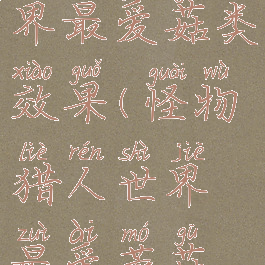 界最爱菇类
xiào guǒ guài wù
效果(怪物
liè rén shì jiè
猎人世界
zuì ài mó gū
最爱蘑菇